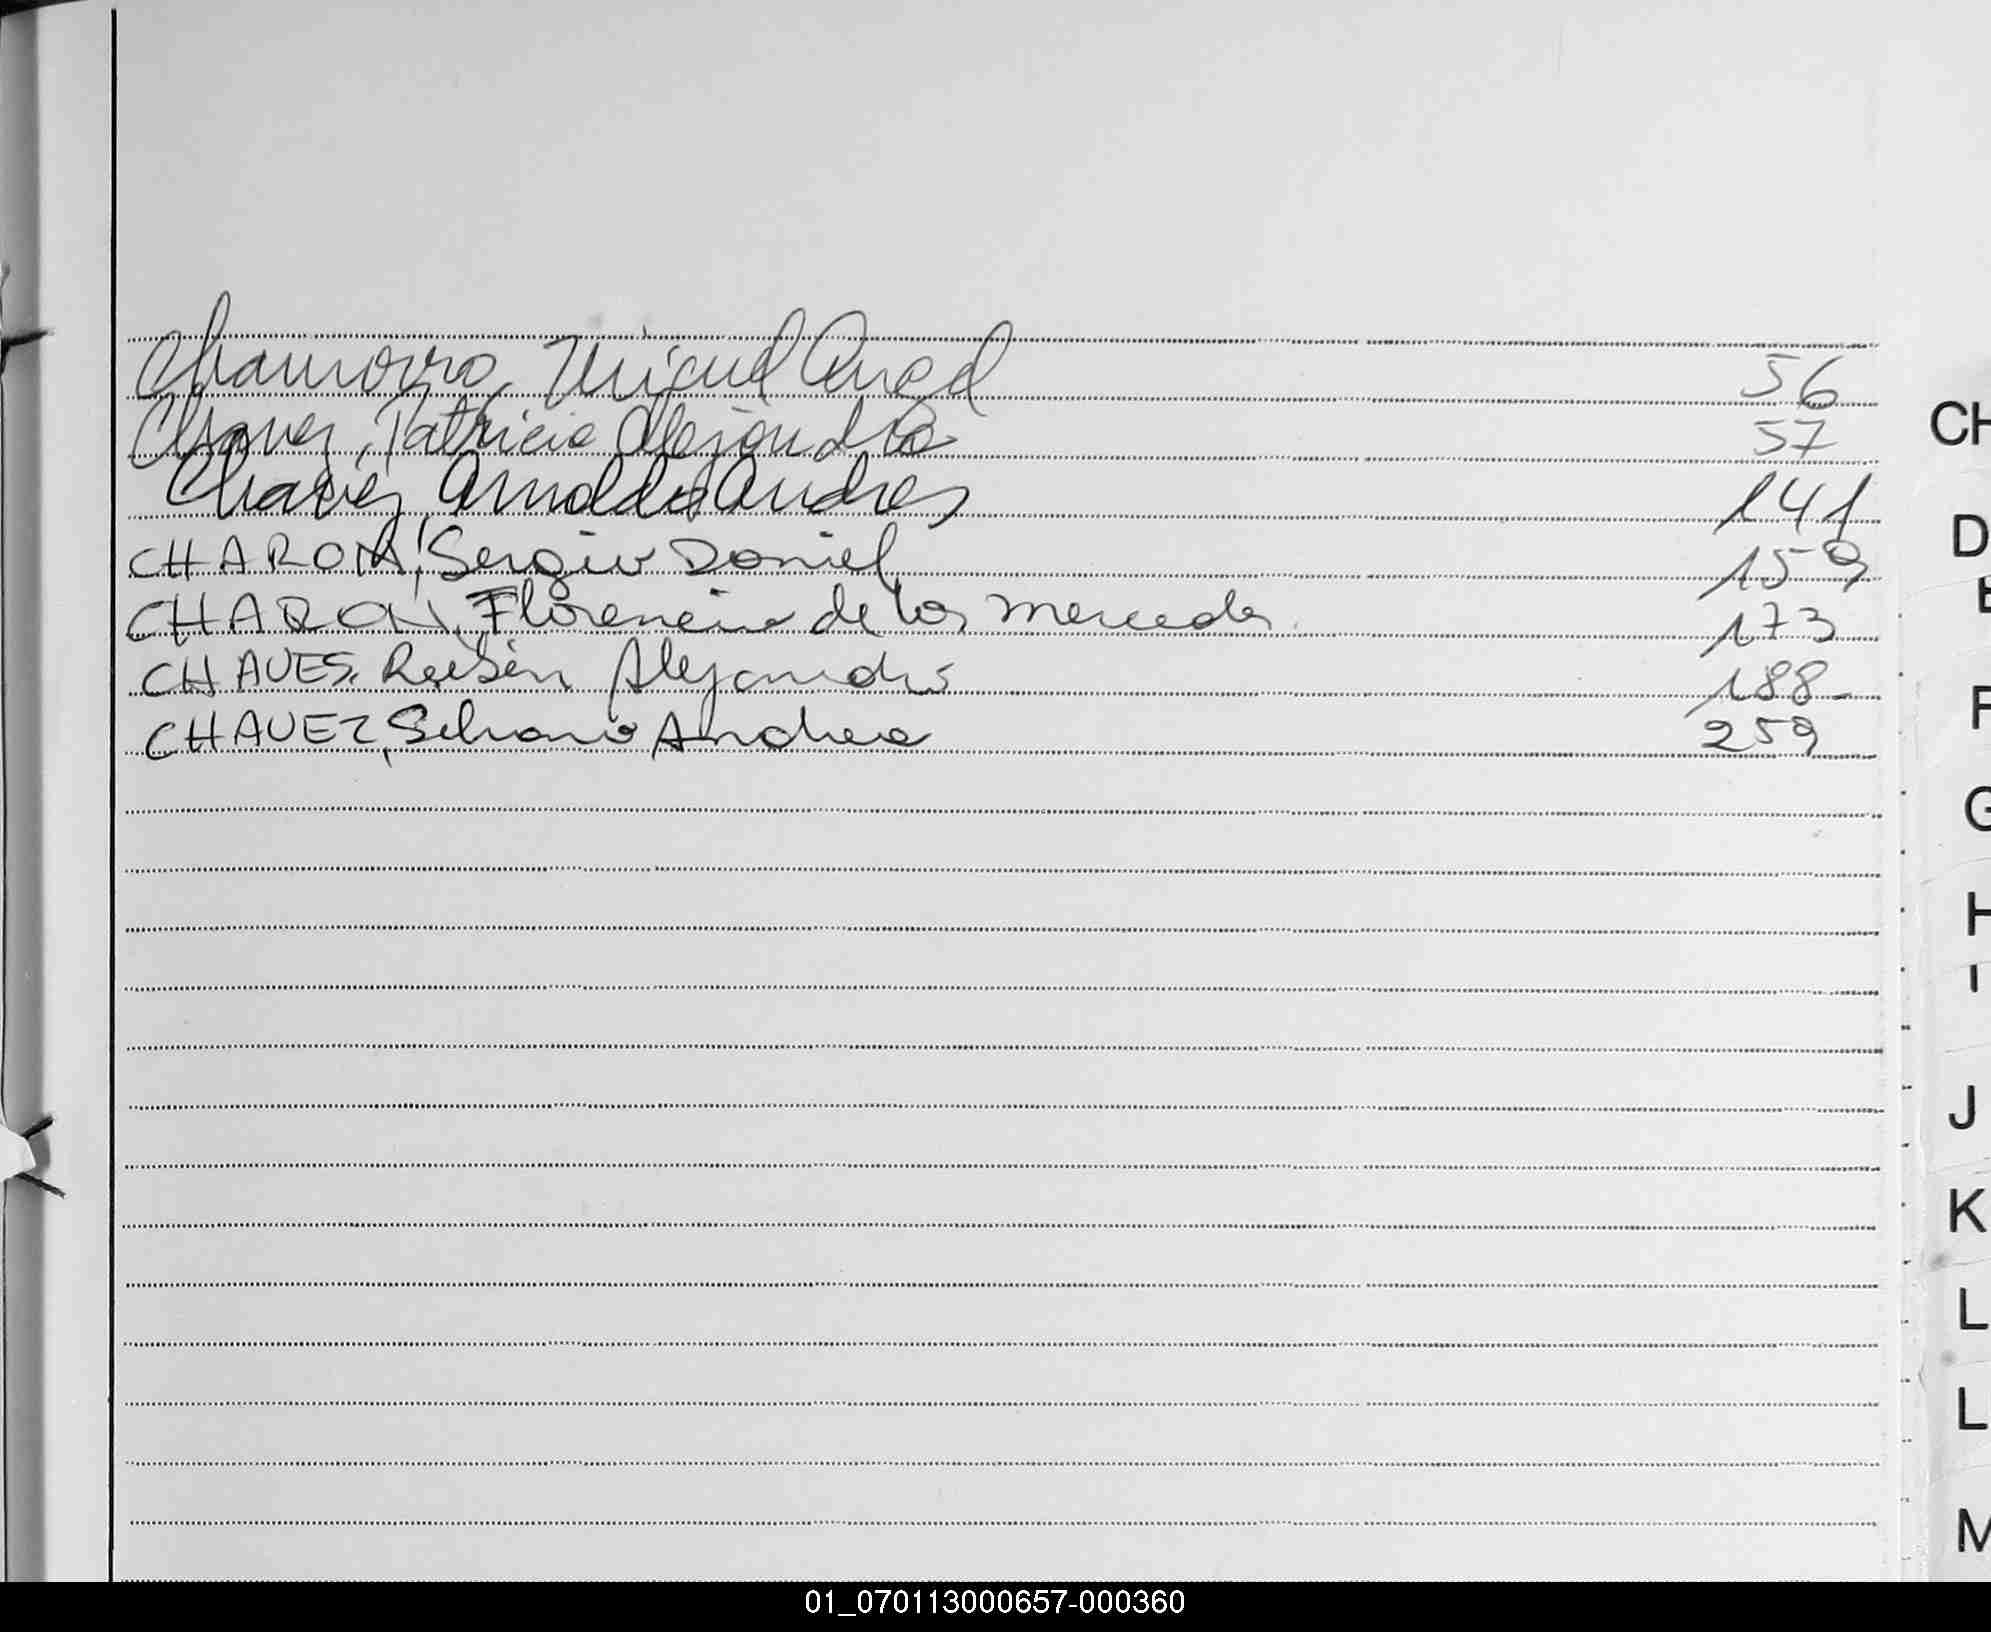 Chamorro, Miguel Angel 56
Chavez, Patricia Alejandra 57
Chavez, Arnoldo Andres 141
CHARON, Sergio Daniel 159
CHARON, Florencia de las Mercedes. 173
CHAVES, Rubén Alejandro 188-
CHAVEZ, Silvana Andrea 259
CH
D
E
F
G
H
I
J
K
L
L
M
01_070113000657-000360